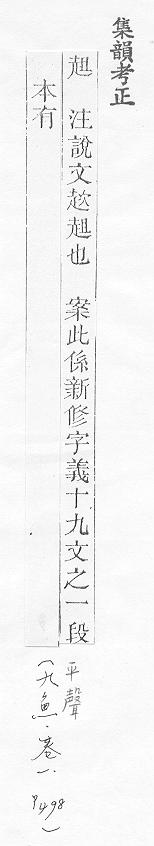 集韻考正
趄 注說文趑趄也 案此係新修字義十九文之一段
本有
平聲
(九魚.卷一. P498)